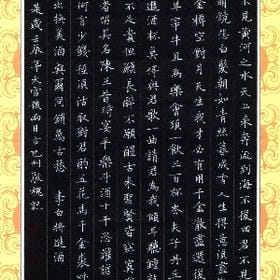 不見黃河之水天上来奔流到海不復回君不見
明鏡悲白髮朝如青絲暮成雪人生得意須盡
金樽空對月天生我才必有用千金散盡還復
羊宰牛且為樂會須一飲三百杯岑夫子丹丘
進酒杯莫停與君歌一曲請君為我傾耳聽鐘鼓
不足貴但願長醉不願醒古來聖賢皆寂寞
者留其名陳王昔時宴平樂斗酒十千恣讙謔
何言少錢徑須沽取對君酌五花馬千金裘
出換美酒與爾同銷萬古愁 李白將進酒
歲壬辰年天官後兩日古巴州記